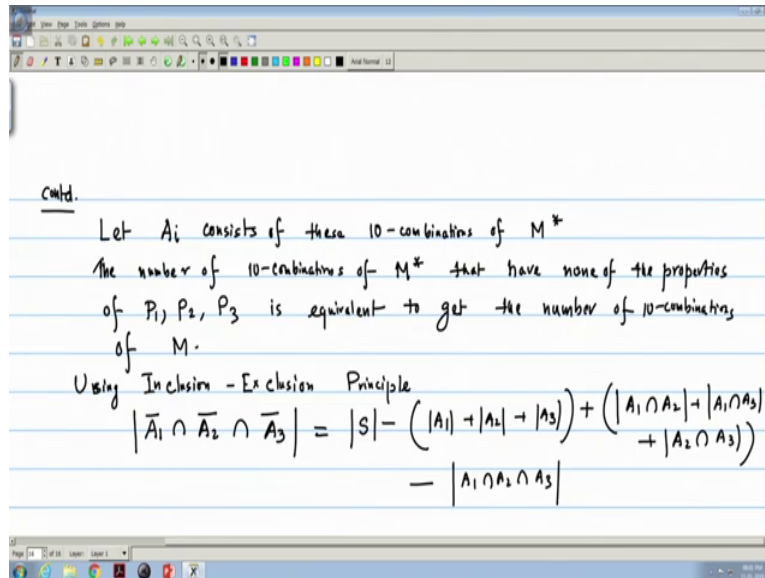 View Page Tools Options Help
Arial Normal 12
contd.
Let Ai consists of these 10-combinations of M*
The number of 10-combinations of M* that have none of the properties
of P1, P2, P3 is equivalent to get the number of 10-combinations
of M.
Using Inclusion-Exclusion Principle
|A̅1 ∩ A̅2 ∩ A̅3| = |S| - (|A1| + |A2| + |A3|) + (|A1 ∩ A2| + |A1 ∩ A3|
+ |A2 ∩ A3|)
- |A1 ∩ A2 ∩ A3|
Page 16 of 16 Layer: Layer 1